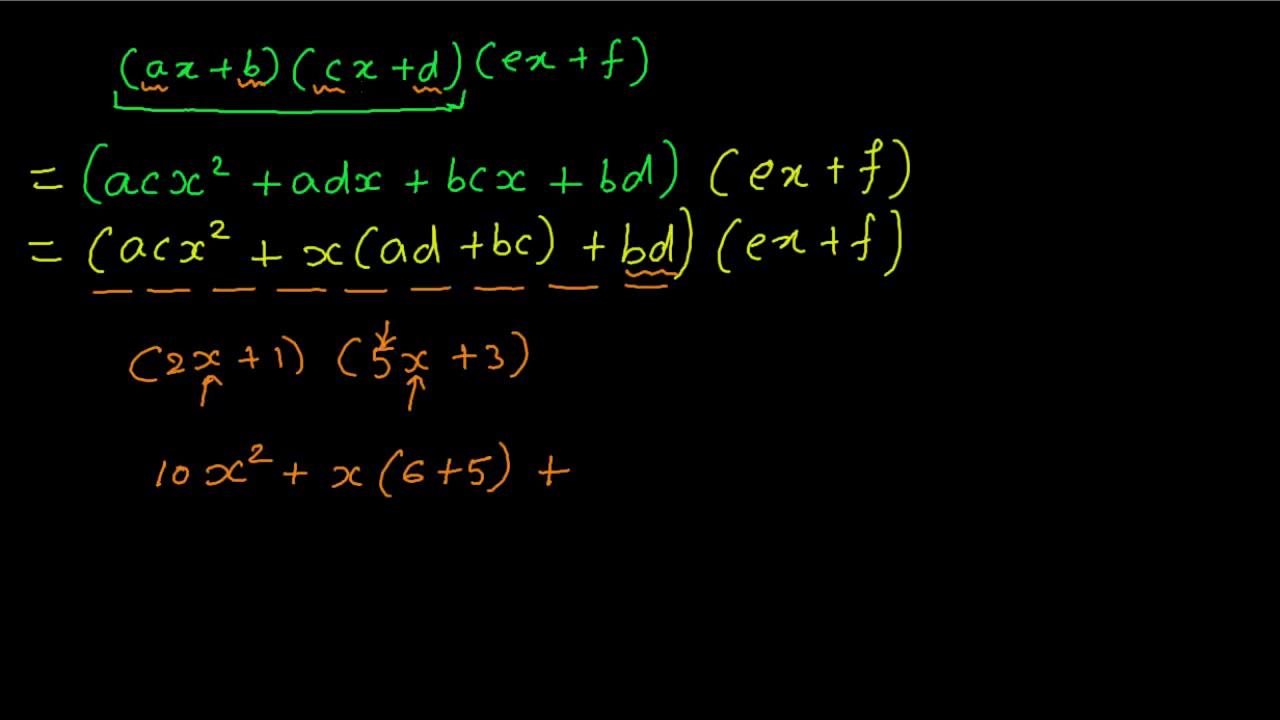 (ax+b)(cx+d)(ex+f)
= (acx² + adx + bcx + bd) (ex+f)
= (acx² + x(ad+bc) + bd) (ex+f)
(2x+1) (5x+3)
10x² + x(6+5) +